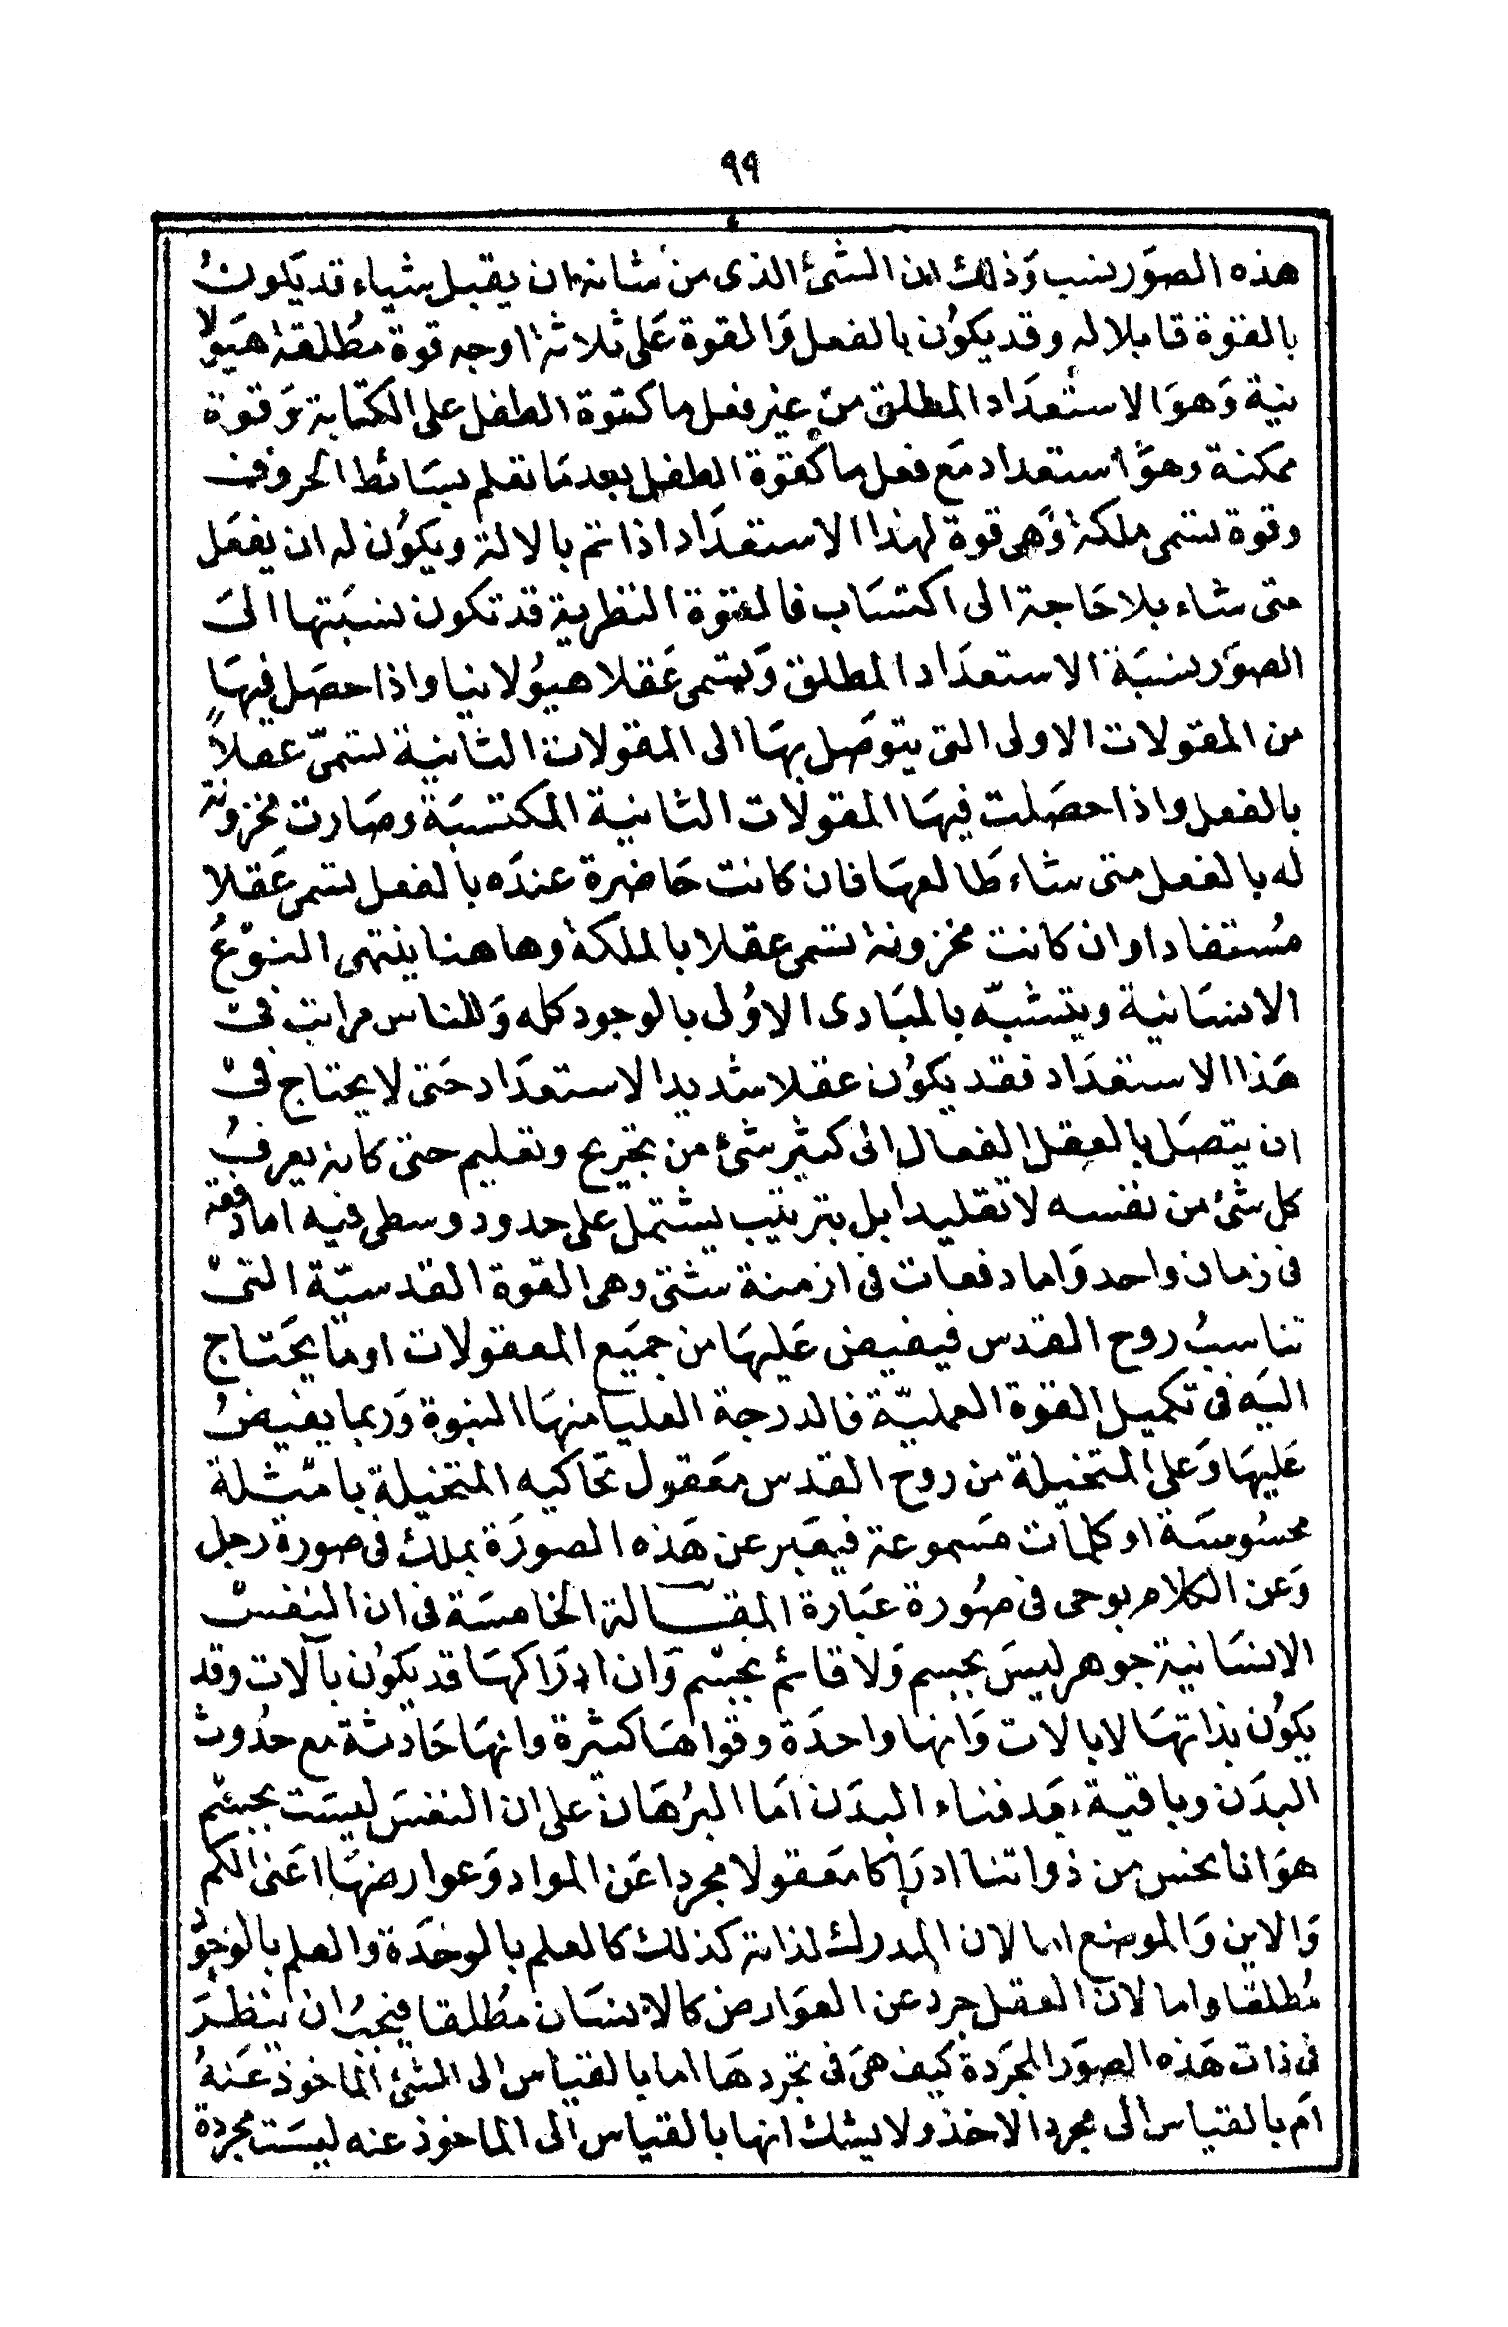 ٩٩
هذه الصور نسب وذلك ان الشئ الذى من شانه ان يقبل شياء قد يكون
بالقوة قابلا له وقد يكون بالفعل والقوة على ثلاثة اوجه قوة مطلقة هيولا
نية وهو الاستعداد المطلق من غير فعل ما كقوة الطفل على الكتابة وقوة
ممكنة وهو استعداد مع فعل ما كقوة الطفل بعد ما تعلم بسائط الحروف
وقوة تسمى ملكة وهى قوة لهذا الاستعداد اذا تم بالالة ويكون له ان يفعل
متى شاء بلا حاجة الى اكتساب فالقوة النظرية قد تكون نسبتها الى
الصور نسبة الاستعداد المطلق وتسمى عقلا هيولانيا واذا حصل فيها
من المقولات الاولى التى يتوصل بها الى المقولات الثانية تسمى عقلاً
بالفعل واذا حصلت فيها المقولات الثانية المكتسبة وصارت مخزونة
له بالفعل متى شاء طالعها فان كانت حاضرة عنده بالفعل تسمى عقلا
مستفادا وان كانت مخزونة تسمى عقلا بالملكة وهاهنا ينتهى النوع
الانسانية ويتشبه بالمبادى الاولى بالوجود كله وللناس مراتب فى
هذا الاستعداد فقد يكون عقلا شديد الاستعداد حتى لا يحتاج فى
ان يتصل بالعقل الفعال الى كثير شئ من تخريج وتعليم حتى كانه يعرف
كل شئ من نفسه لا تقليدا بل بترتيب يشتمل على حدود وسطى فيه اما دفعة
فى زمان واحد واما دفعات فى ازمنة شتى وهى القوة القدسية التى
تناسب روح القدس فيفيض عليها من جميع المعقولات او ما يحتاج
اليه فى تكميل القوة العملية فالدرجة العليا منها النبوة وربما يفيض
عليها وعلى المتخيلة من روح القدس معقول تحاكيه المتخيلة بامثلة
محسوسة او كلمات مسموعة فيعبر عن هذه الصورة بملك فى صورة رجل
وعن الكلام بوحى فى صورة عبارة المقالة الخامسة فى ان النفس
الانسانية جوهر ليس بجسم ولا قائم بجسم وان ادراكها قد يكون بآلات وقد
يكون بذاتها لا بالات وانها واحدة وقواها كثيرة وانها حادثة مع حدوث
البدن وباقية بعد فناء البدن اما البرهان على ان النفس ليست بجسم
هو انا نحس من ذواتنا ادراكا معقولا مجردا عن المواد وعوارضها اعنى الكم
والاين والموضع اما لان المدرك لذاته كذلك كالعلم بالوحدة والعلم بالوجود
مطلقا واما لان العقل جرد عن العوارض كالانسان مطلقا فيجب ان ينظر
فى ذات هذه الصور المجردة كيف هى فى تجردها اما بالقياس الى الشئ الماخوذ عنه
ام بالقياس الى مجرد الاخذ ولا يشك انها بالقياس الى الماخوذ عنه ليست مجردة